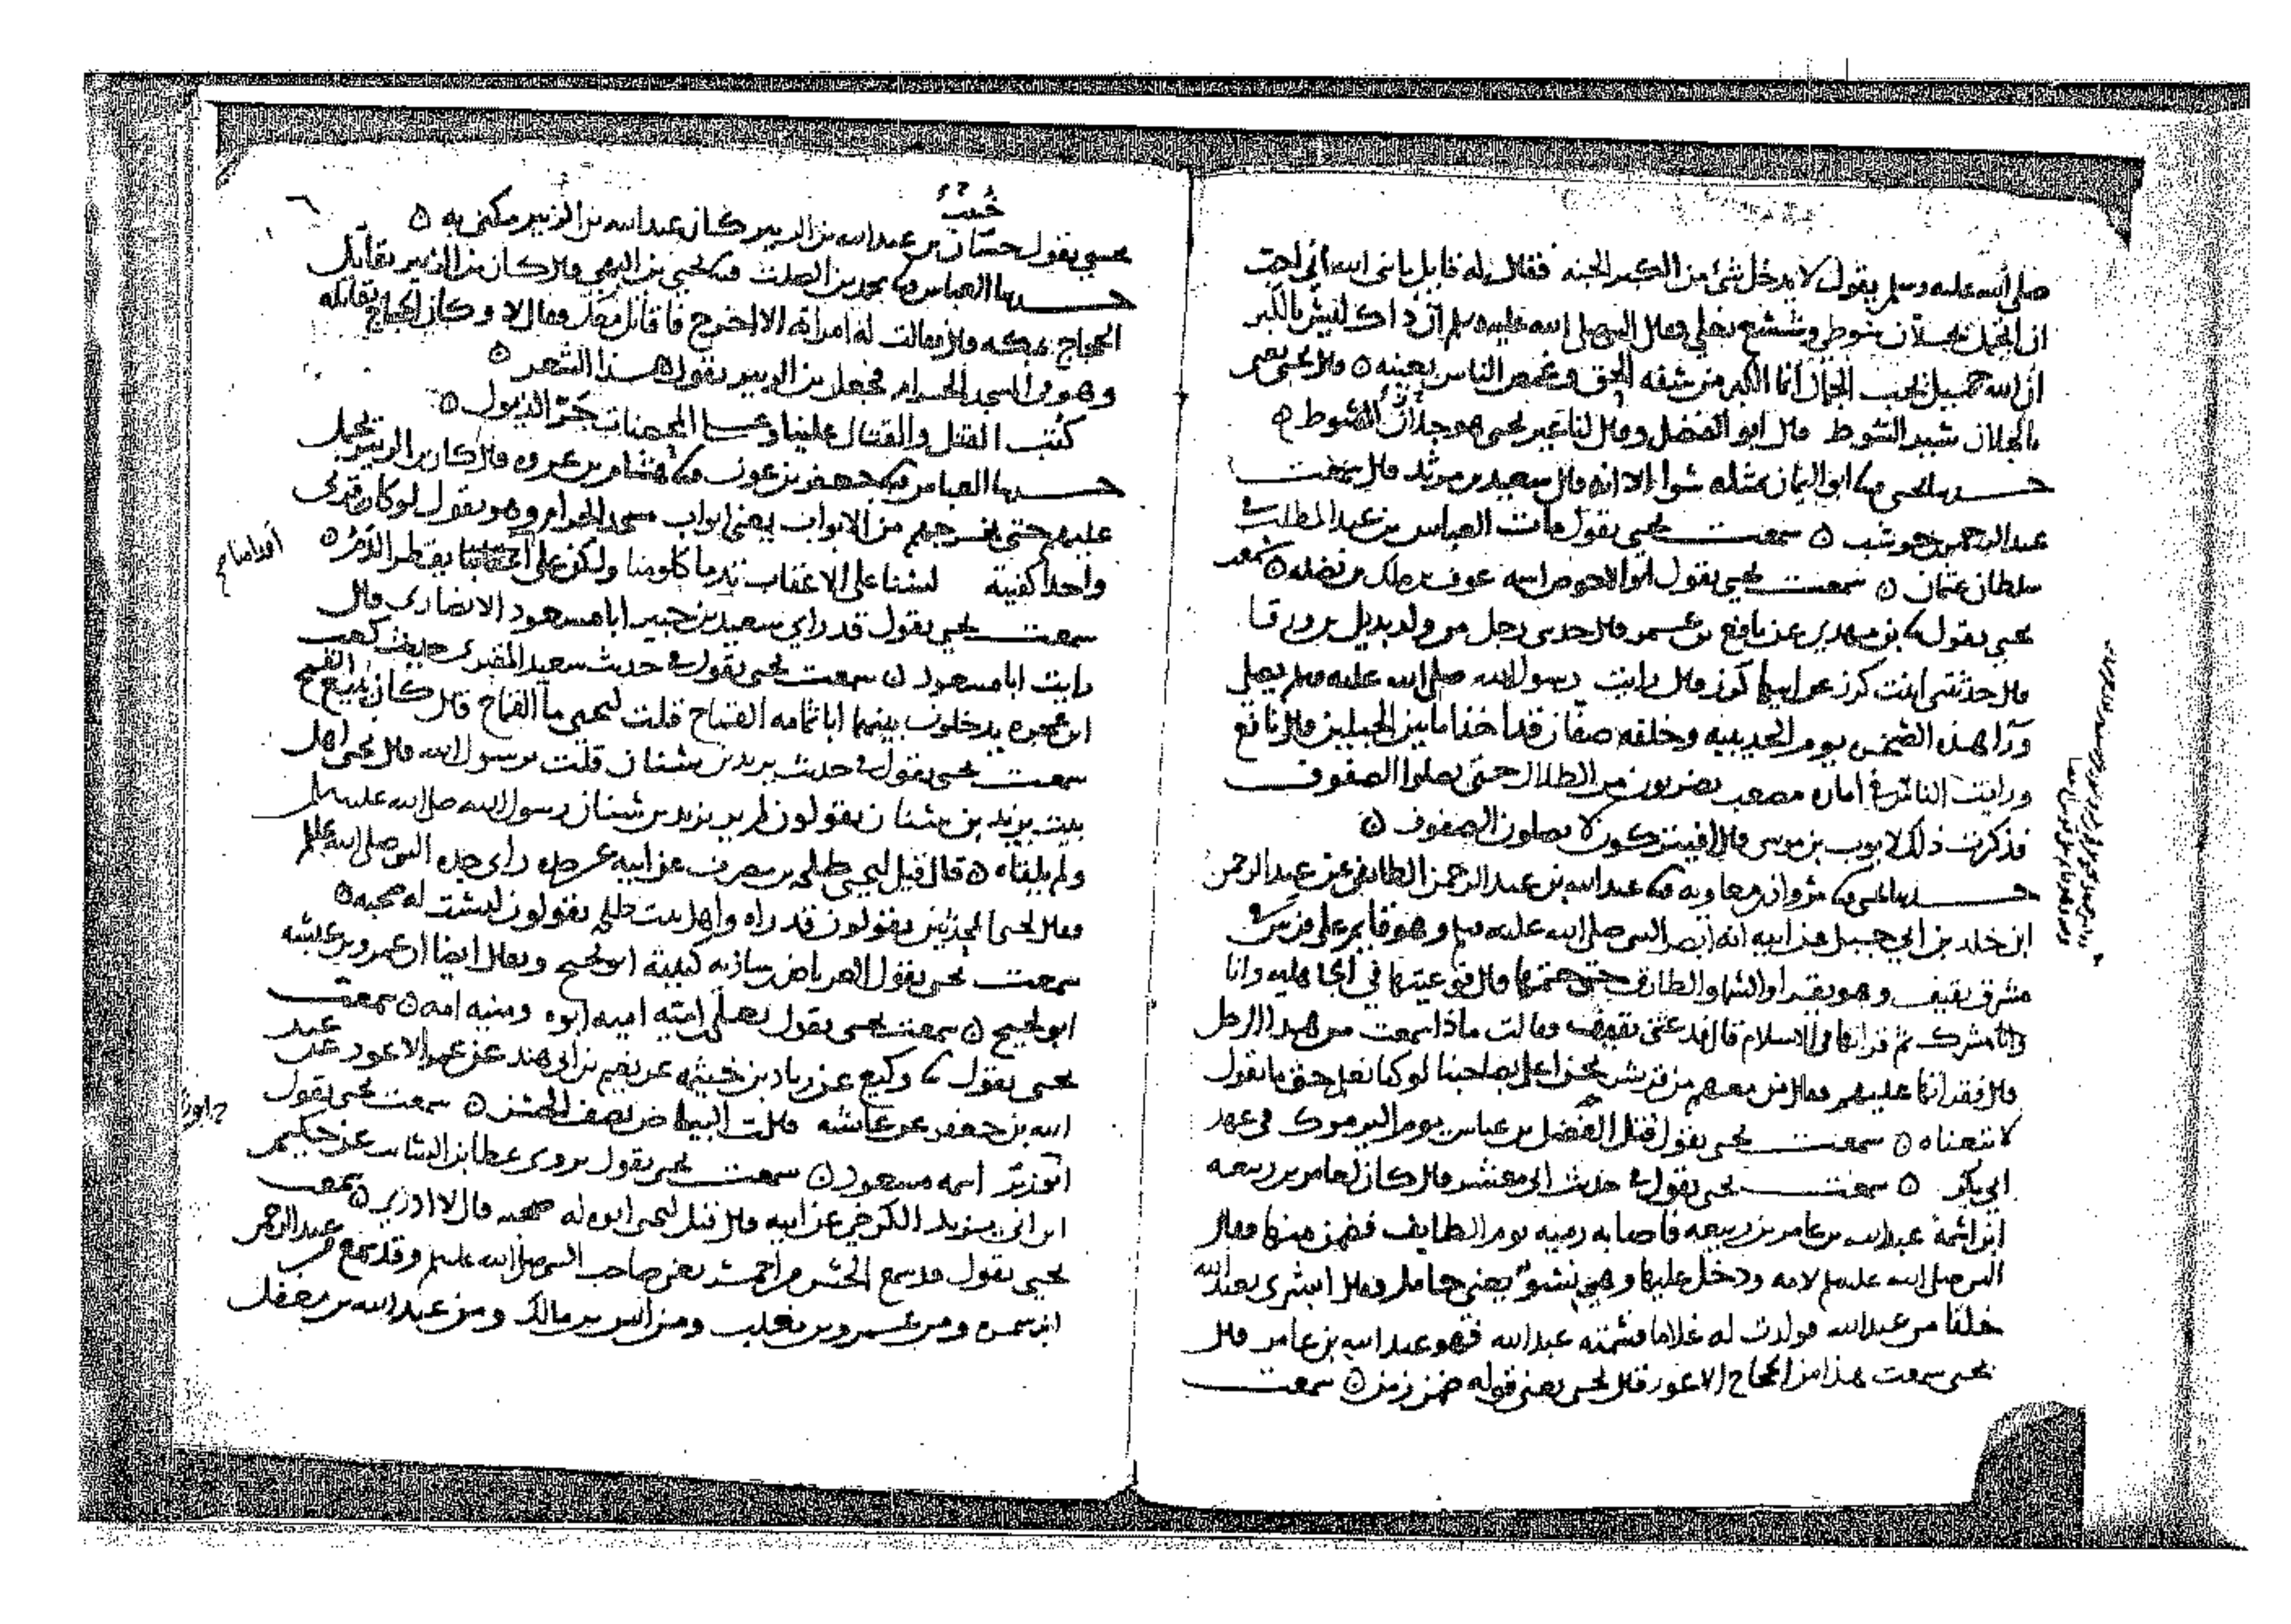 صلى الله عليه وسلم يقول لا يدخل شئ من الكبر الجنه فقال له قايل يا نبى الله انى احب
ان اتجمل بجلان سوطى وشسع نعلي فقال النبي صلى الله عليه وسلم ان ذاك ليس بالكبر
ان الله جميل يحب الجمال انما الكبر من سفه الحق وغمص الناس بعينه ٥ قال يحيى يعني
بالجلان سير السوط قال ابو الفضل وقال لنا غير يحيى هو جلاز السوط ٥
حدثنا يحيى نا ابو اليمان بمثله سوا الا انه قال سعيد بن مرثد قال سمعت
عبد الرحمن بن حوشب ٥ سمعت يحيى يقول مات العباس بن عبد المطلب في
سلطان عثمان ٥ سمعت يحيى يقول ابو الاحوص اسمه عوف بن ملك بن نضله ٥ سمعت
يحيى يقول نا بن مهدي عن نافع بن عمر قال حدثني رجل من ولد بديل بن ورقا
قال حدثتني ابنت كرز عن ابيها كرز قال رايت رسول الله صلى الله عليه وسلم يصلي
ورا هذه الشمس يوم الحديبيه وخلفه صفان قد اخذا ما بين الجبلين قال نافع
ورايت الناس في اماره مصعب يضربون من الطلال حتى يصلوا الصفوف
فذكرت ذلك لايوب بن موسى قال افيتركون لا يصلون الصفوف ٥
حدثنا يحيى نا مروان بن معاويه نا عبد الله بن عبد الرحمن الطايفي عن عبد الرحمن
ابن خلد بن ابي جبل عن ابيه انه ابصر النبي صلى الله عليه وسلم وهو قايم على قوس في
مشرق ثقيف وهو يقرا والسما والطارق حتى ختمها قال فوعيتها في الجاهليه وانا
وانا مشرك ثم قراتها في الاسلام قال فدعتني ثقيف وقالت ماذا سمعت من هذا الرجل
قال فقراتها عليهم وقال من معهم من قريش نحن اعلم بصاحبنا لو كنا نعلم حق ما يقول
لاتبعناه ٥ سمعت يحيى يقول قتل الفضل بن عباس يوم اليرموك في عهد
ابي بكر ٥ سمعت يحيى يقول في حديث ابي معشر قال كان لعامر بن ربيعه
ابن اسمه عبد الله بن عامر بن ربيعه فاصابه رميه يوم الطايف فضمن منها وقال
النبي صلى الله عليه وسلم لامه ودخل عليها وهي نسو يعني حامل وقال ابشري بعبد الله
خلفا من عبد الله فولدت له غلاما فسمته عبد الله فهو عبد الله بن عامر قال
يحيى سمعت هذا من الحجاج الاعور قال يحيى يعني قوله ضمن زمن ٥ سمعت
خبيب
يحيى يقول حسان بن عبد الله بن الزبير كان عبد الله بن الزبير يكنى به ٥
حدثنا العباس نا محمد بن الصلت نا يحيى بن التيمي قال كان بن الزبير يقاتل
الحجاج بمكه قال فقالت له امراته الا اخرج فاقاتل معك فقال لا وكان الحجاج يقاتله
وهو في المسجد الحرام فجعل بن الزبير يقول هذا الشعر ٥
كتب القتل والقتال علينا وعلى المحصنات جر الذيول ٥
حدثنا العباس نا جعفر بن عون نا هشام بن عروه قال كان بن الزبير يحمل
عليهم حتى يخرجهم من الابواب يعني ابواب مسجد الحرام وهو يقول لو كان قرني
واحدا كفيته لسنا على الاعقاب تدما كلومنا ولكن على اعقابنا يقطر الدم ٥
اقدامنا صح
سمعت يحيى يقول قد راى سعيد بن جبير ابا مسعود الانصارى قال
رايت ابا مسعود ٥ سمعت يحيى يقول في حديث سعيد المقبري حديث كعب
ابن عجره يدخلون بينهما ابا ثمامه القماح قلت ليحيى ما القماح قال كان يبيع القمح
سمعت يحيى يقول في حديث يزيد بن شيبان قلت نا رسول الله قال يحيى اهل
بيت يزيد بن شيبان يقولون لم ير يزيد بن شيبان رسول الله صلى الله عليه وسلم
ولم يلقاه ٥ قال قيل ليحيى طلحه بن مصرف عن ابيه عن جده راى جده النبي صلى الله عليه وسلم
فقال يحيى المحدثين يقولون قد راه واهل بيت طلحه يقولون ليست له صحبه ٥
سمعت يحيى يقول العرباض بن ساريه كنيته ابو نجيح ويقال ايضا ان عمرو بن عبسه
ابو نجيح ٥ سمعت يحيى يقول يعلى بن اميه اميه ابوه ومنيه امه ٥ سمعت
يحيى يقول نا وكيع عن زياد بن خيثمه عن نعيم بن ابي هند عن عمه الاعور عن عبد
الله بن جعفر عن عايشه قالت البياض نصف الحسن ٥ سمعت يحيى يقول
ابو رزين اسمه مسعود ٥ سمعت يحيى يقول يروى عطا بن السايب عن حكيم
ابن ابي يزيد الكرخي عن ابيه قال قيل ليحيى ابوه له صحبه قال لا ادري ٥ سمعت
يحيى يقول قد سمع الحسن من احمر يعني صاحب النبي صلى الله عليه وسلم وقد سمع من عبد الرحمن
ابن سمره ومن عمرو بن تغلب ومن انس بن مالك ومن عبد الله بن مغفل